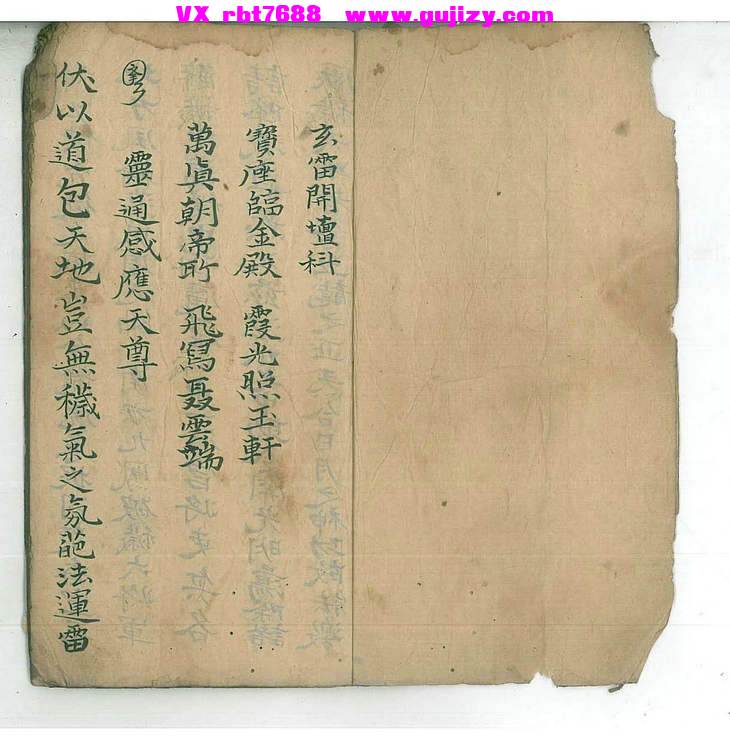 VX rbt7688 www.gujizy.com
玄雷開壇科
寶座臨金殿 霞光照玉軒
萬真朝帝所 飛舄聶雲端
靈通感應天尊
伏以道包天地豈無穢氣之氛葩法運雷